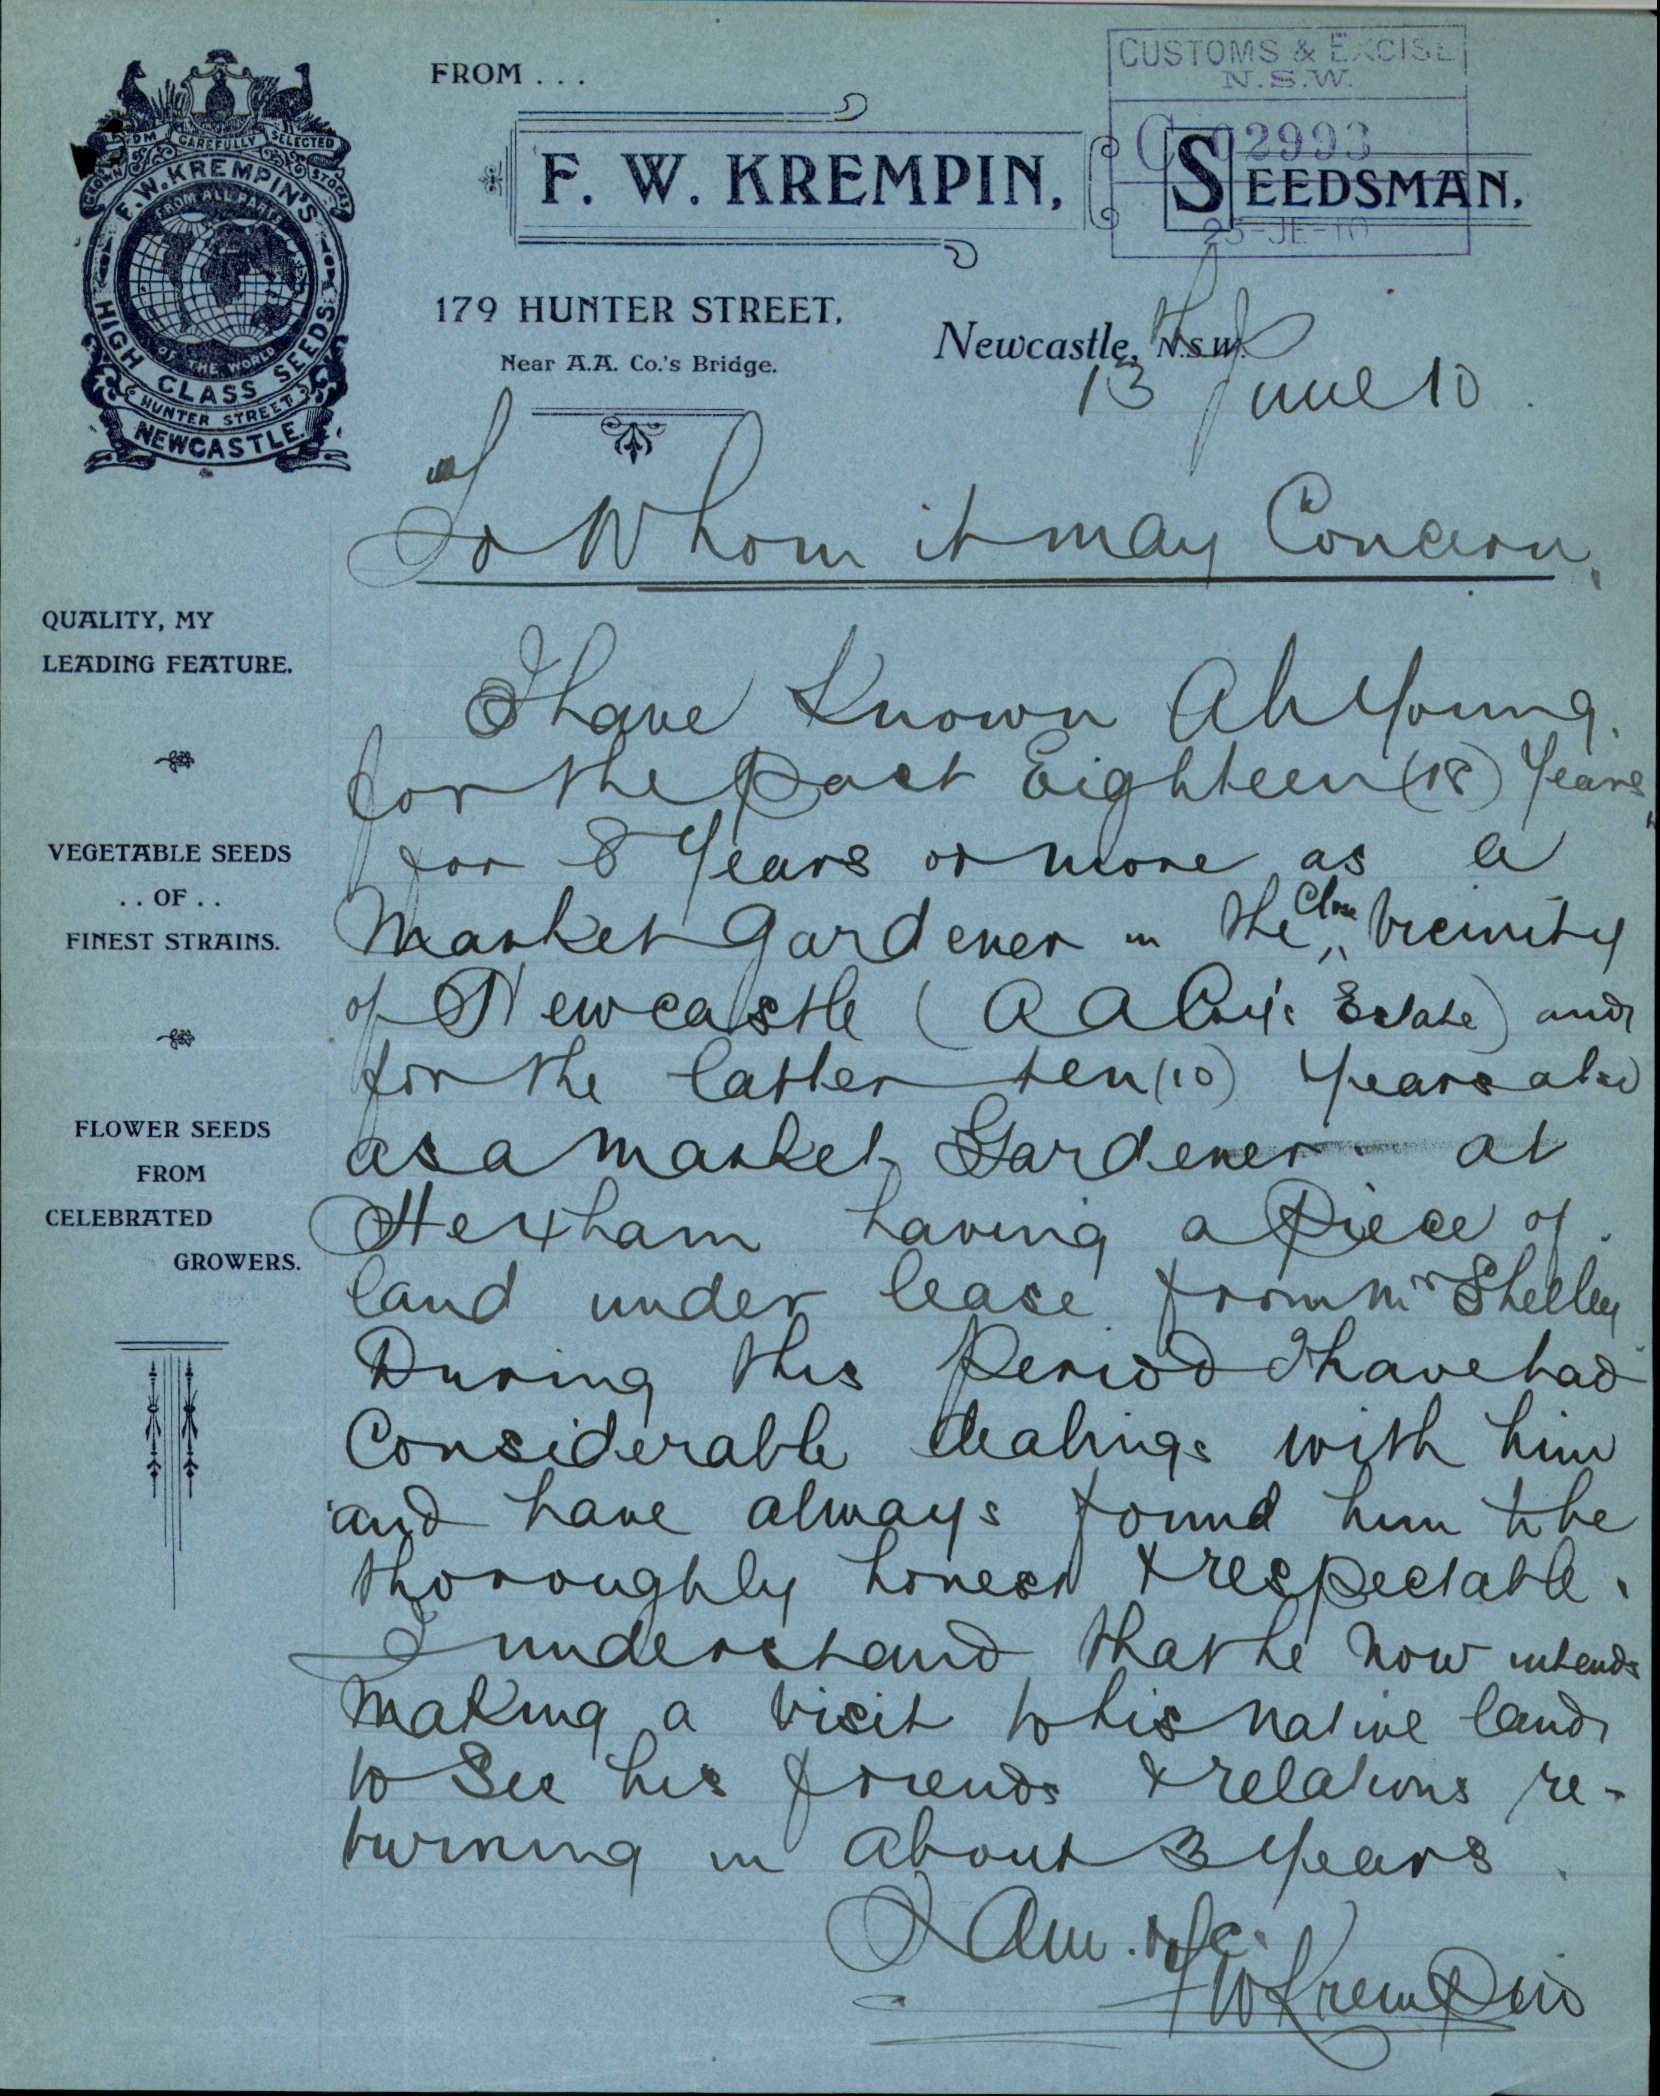 FROM . . .
CUSTOMS & EXCISE
N.S.W.
C 02993
25-JE-10
F. W. KREMPIN, SEEDSMAN.
179 HUNTER STREET,
Near A.A. Co.'s Bridge.
Newcastle, N.S.W.
13th June 10
GROWN FROM CAREFULLY SELECTED STOCKS
F.W.KREMPIN'S
FROM ALL PARTS
OF THE WORLD
HIGH CLASS SEEDS
HUNTER STREET
NEWCASTLE.
QUALITY, MY
LEADING FEATURE.
VEGETABLE SEEDS
. . OF . .
FINEST STRAINS.
FLOWER SEEDS
FROM
CELEBRATED
GROWERS.
To Whom it may Concern.
I have Known Ah Young
for the past Eighteen (18) Years
for 8 Years or more as a
Market Gardener in the Close Vicinity
of Newcastle (A A Coy's Estate) and
for the latter ten (10) Years also
as a Market Gardener at
Hexham having a Piece of
land under lease from Mr Shelley
During this Period I have had
Considerable dealings with him
and have always found him to be
thoroughly honest & respectable.
I understand that he now intends
Making a visit to his native land
to See his friends & relations re-
turning in about 3 Years.
I am. &c.
FW Krempin